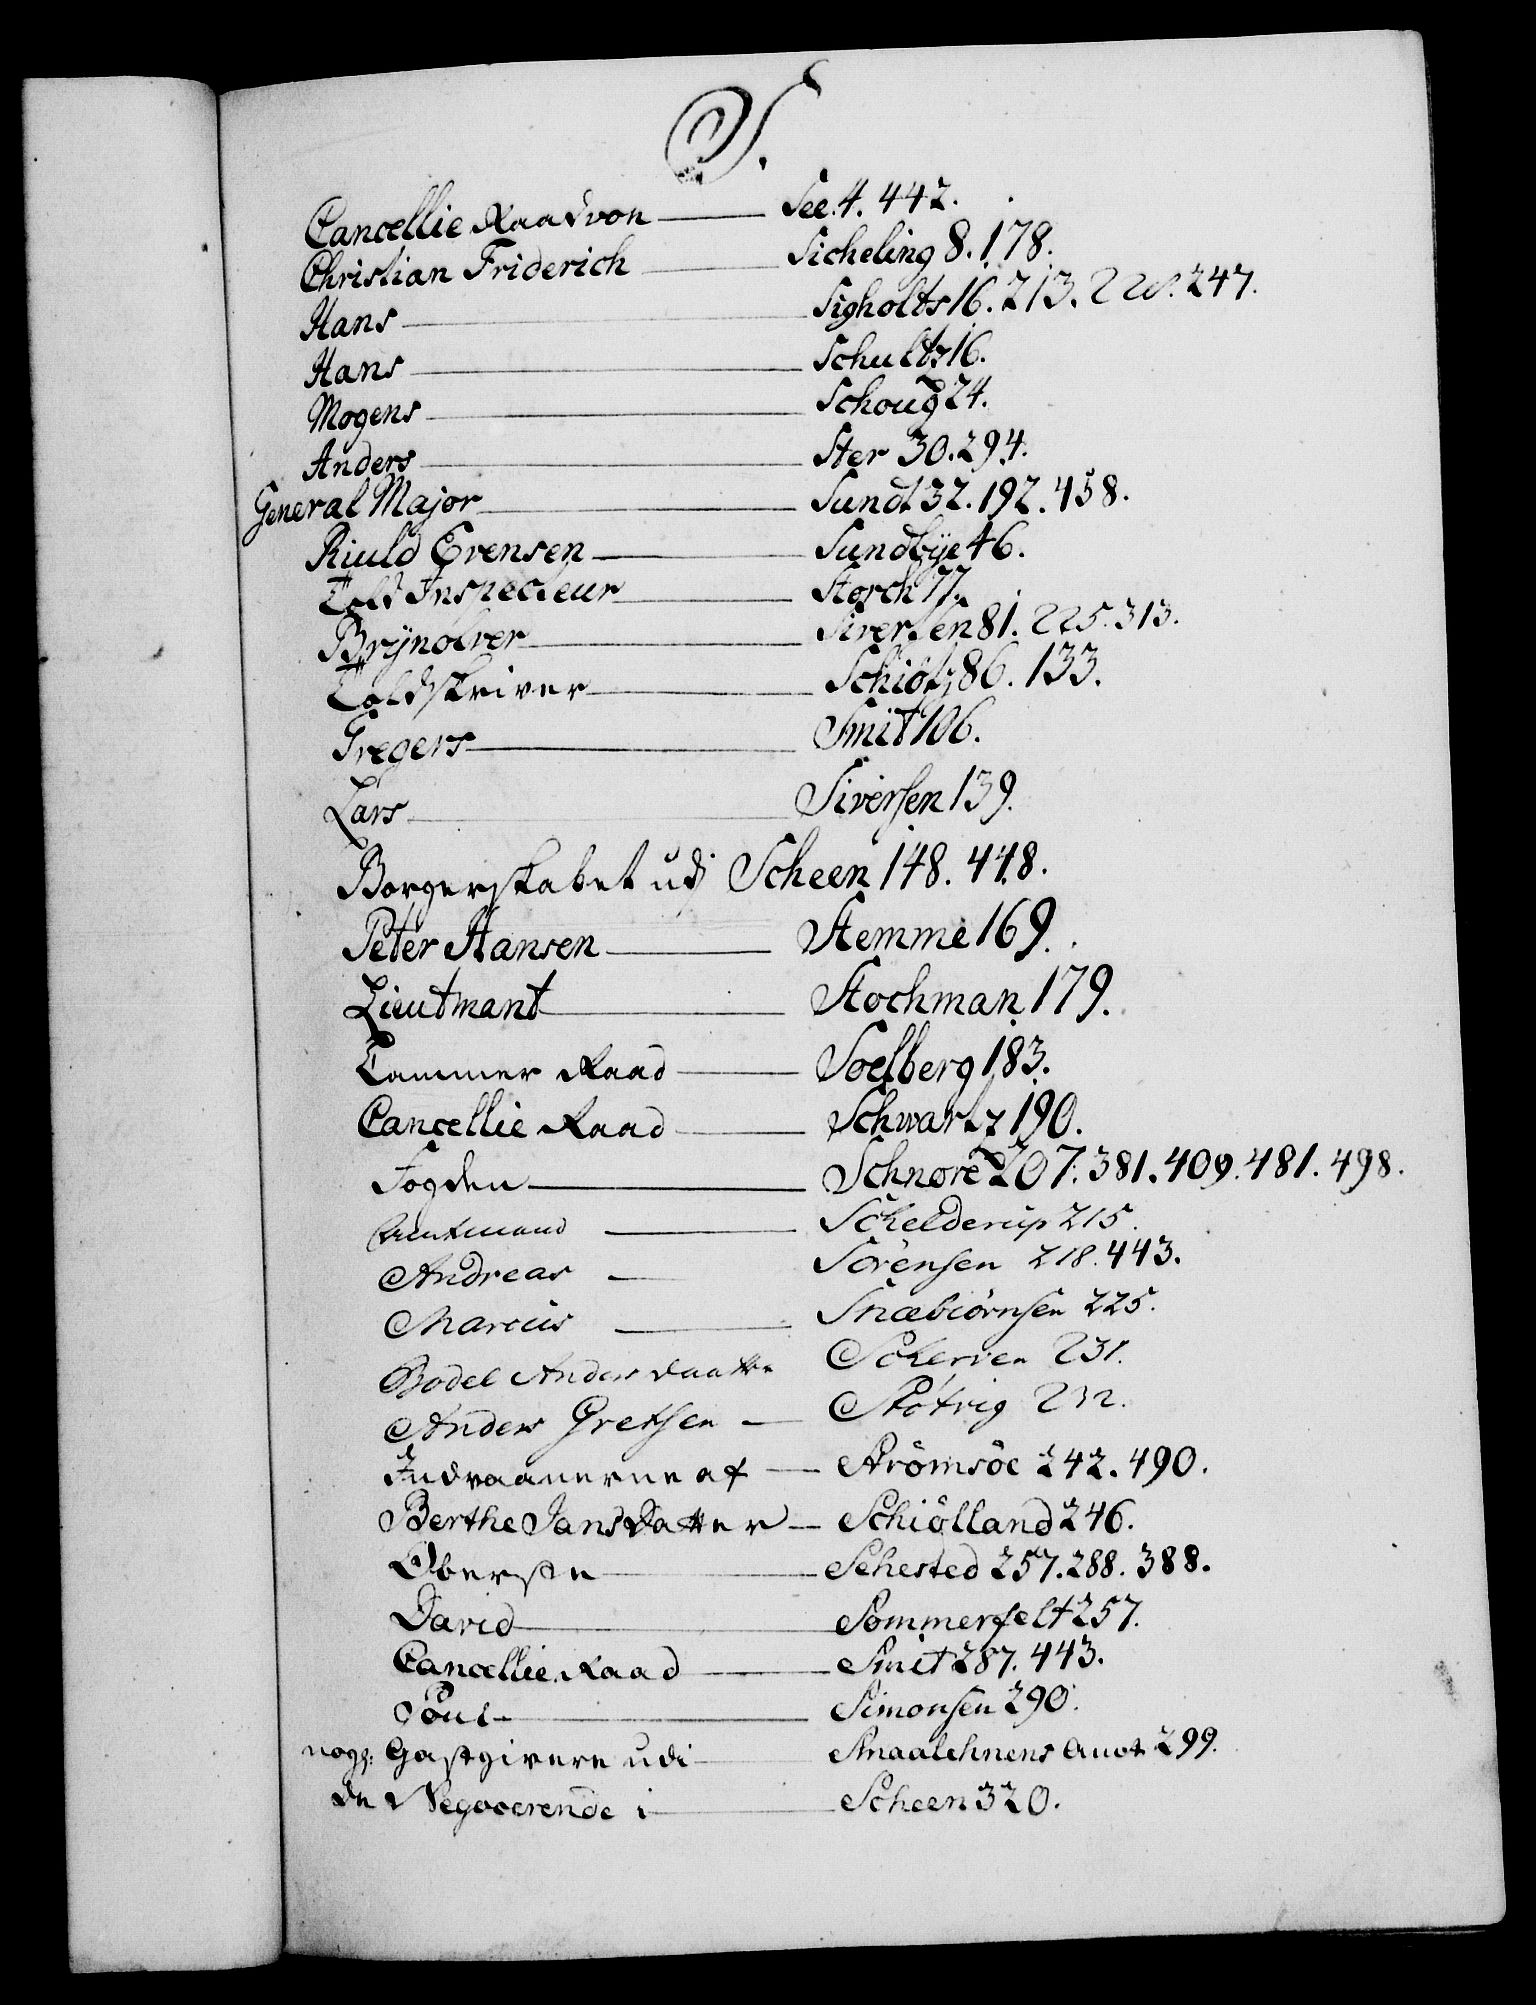 S.
Cancellie Raad von — See. 4. 442.
Christian Friderich — Sicheling 8. 178.
Hans — Sigholts 16. 213. 228. 247.
Hans — Schultz 16.
Mogens — Schoug 24.
Anders — Ster 30. 294.
General Major — Sundt 32. 192. 458.
Riuld Evensen — Sundbÿe 46.
Told Inspecteur — Storch 77.
Brÿnolver — Siversen 81. 225. 313.
Toldskriver — Schiøtz 86. 133.
Gregers — Smit 106.
Lars — Siversen 139.
Borgerskabet udj Scheen 148. 448.
Peter Hansen — Stemme 169.
Lieutmant — Stochman 179.
Cammer Raad — Soelberg 183.
Cancellie Raad — Schwartz 190.
Fogden — Schnore 207. 381. 409. 481. 498.
Amtmand — Schelderup 215.
Andreas — Sörensen 218. 443.
Marcus — Snæbiörnsen 225.
Bodel Anders daatter Scherven 231.
Anders Gretsen — Støtvig 232.
Indvaanerne af — Strömsöe 242. 490.
Berthe Jansdatter — Schiölland 246.
Obersten — Sehested 257. 288. 388.
David — Sommerfelt 257.
Cancellie Raad — Smit 287. 443.
Poul — Simonsen 290.
nogle Gastgivere udi — Smaalehnens Amt 299.
de Negocerende i — Scheen 320.